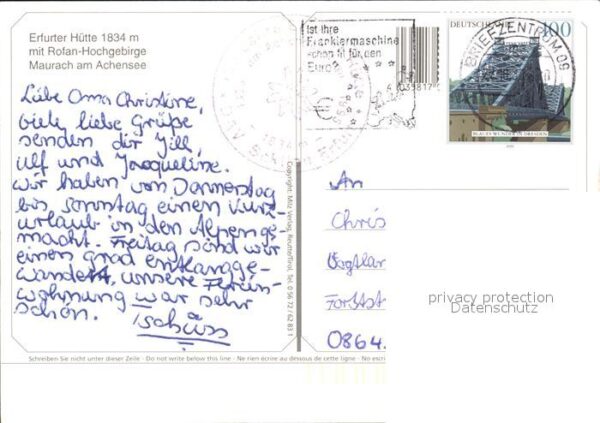 Erfurter Hütte 1834 m
mit Rofan-Hochgebirge
Maurach am Achensee
Liebe Oma Christine,
viele liebe Grüße
senden dir Jill,
Ulf und Jacqueline.
Wir haben von Donnerstag
bis Sonntag einen Kurz-
urlaub in den Alpen ge-
macht. Freitag sind wir
einen Grad entlangge-
wandert, unsere Ferien-
wohnung war sehr
schön.
Tschüss
Schreiben Sie nicht unter dieser Zeile - Do not write below this line - Ne rien écrire au dessous de cette ligne - No escri
Copyright: Milz Verlag, Reutte/Tirol, Tel. 0 56 72 / 62 83
Ist Ihre
Frankiermaschine
schon fit für den
Euro?
033817
DEUTSCHLAND 100
BRIEFZENTRUM 08
BLAUES WUNDER IN DRESDEN
An
Chris
Vogtlar
Forstst
0864
privacy protection
Datenschutz